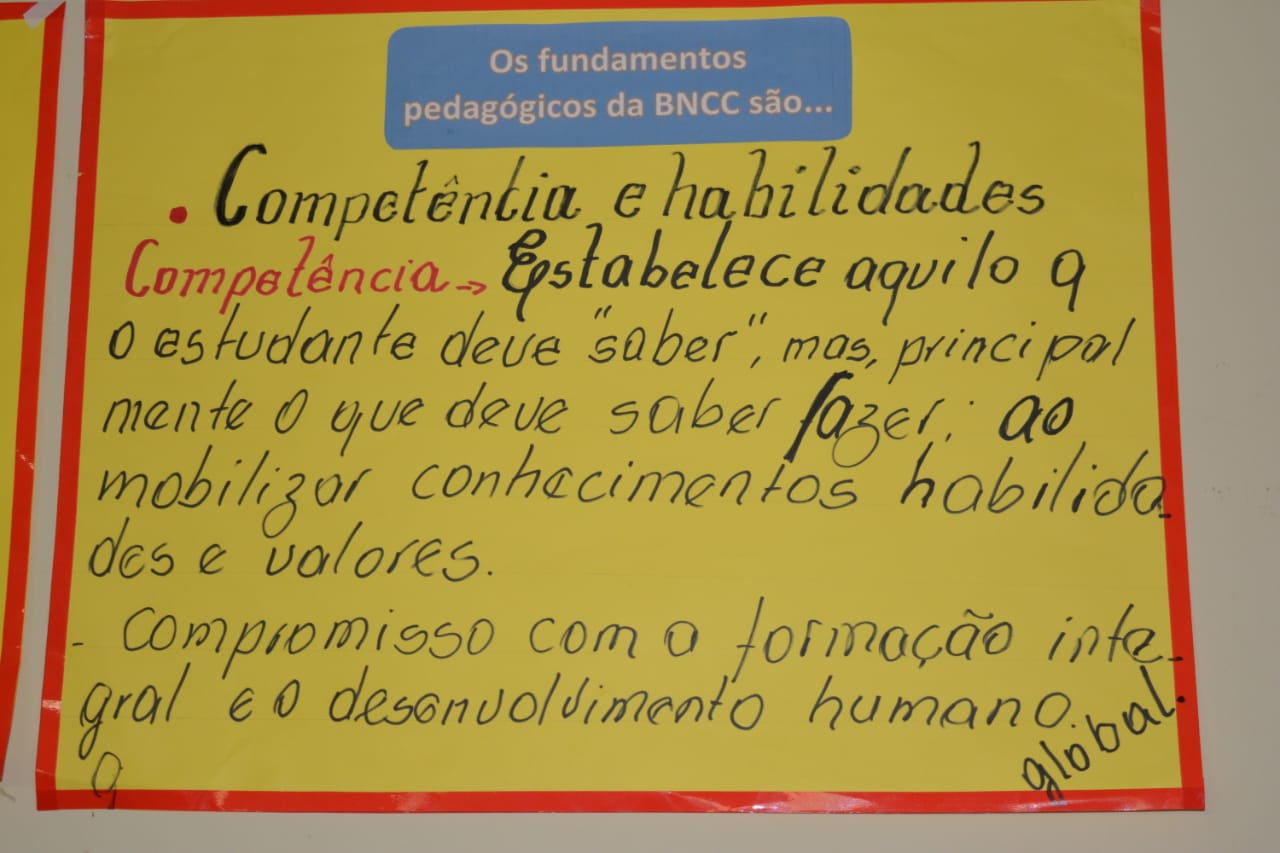 Os fundamentos
pedagógicos da BNCC são...
. Competência e habilidades
Competência → Estabelece aquilo q
o estudante deve "saber", mas, principal
mente o que deve saber fazer; ao
mobilizar conhecimentos habilida-
des e valores.
- Compromisso com a formação inte-
gral e o desenvolvimento humano.
global.
g